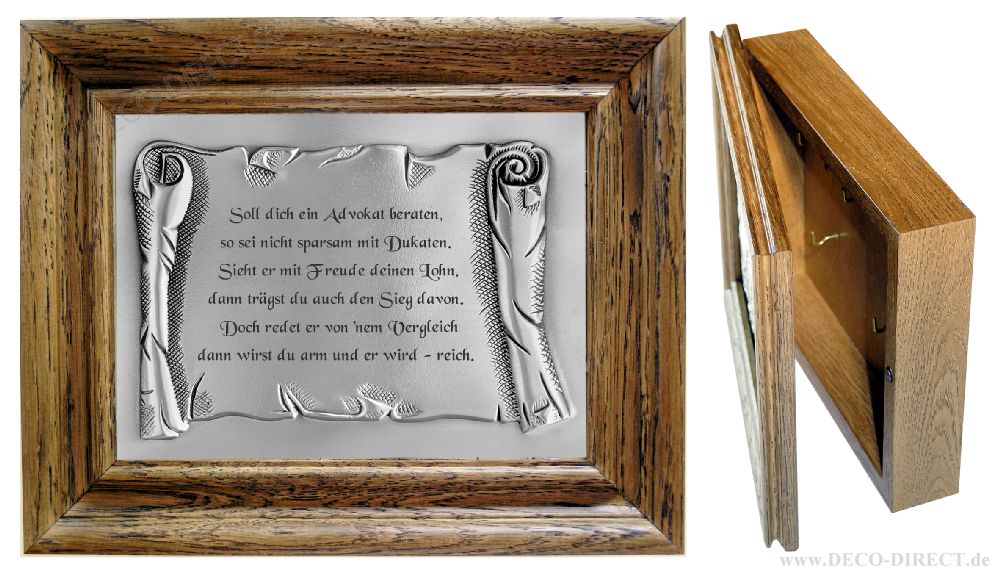 Soll dich ein Advokat beraten,
so sei nicht sparsam mit Dukaten.
Sieht er mit Freude deinen Lohn,
dann trägst du auch den Sieg davon.
Doch redet er von 'nem Vergleich
dann wirst du arm und er wird - reich.
DECO-DIRECT.de
www.DECO-DIRECT.de